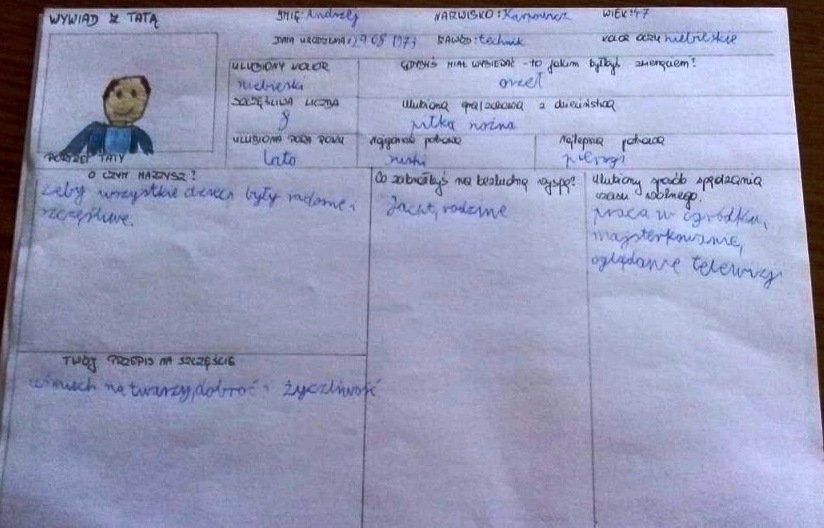 WYWIAD Z TATĄ
IMIĘ: Andrzej NAZWISKO: Karpowicz WIEK: 47
DATA URODZENIA: 29 08 1973 ZAWÓD: technik KOLOR OCZU niebieskie
ULUBIONY KOLOR
niebieski
GDYBYŚ MIAŁ WYBIERAĆ - to jakim byłbyś zwierzęciem?
orzeł
SZCZĘŚLIWA LICZBA
8
Ulubiona gra/zabawa z dzieciństwa
piłka nożna
ULUBIONA PORA ROKU
lato
Najgorsza potrawa
sushi
Najlepsza potrawa
pierogi
PORTRET TATY
O CZYM MARZYSZ?
żeby wszystkie dzieci były radosne i
szczęśliwe.
Co zabrałbyś na bezludną wyspę?
Jacht, rodzinę
Ulubiony sposób spędzania
czasu wolnego.
praca w ogródku,
majsterkowanie,
oglądanie telewizji
TWÓJ PRZEPIS NA SZCZĘŚCIE
uśmiech na twarzy, dobroć i życzliwość